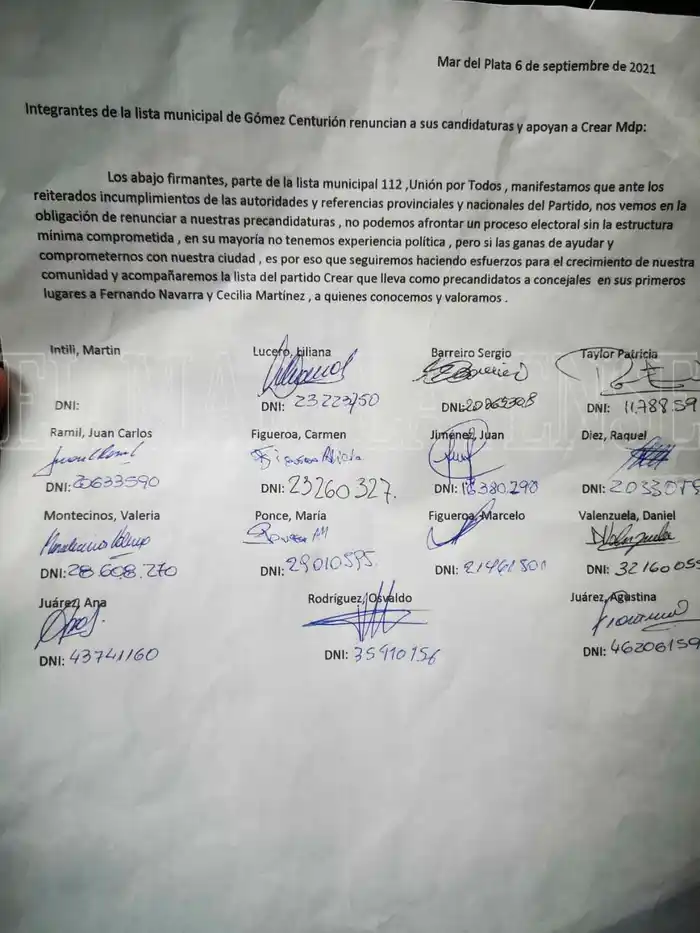 Mar del Plata 6 de septiembre de 2021
Integrantes de la lista municipal de Gómez Centurión renuncian a sus candidaturas y apoyan a Crear Mdp:
Los abajo firmantes, parte de la lista municipal 112 ,Unión por Todos , manifestamos que ante los
reiterados incumplimientos de las autoridades y referencias provinciales y nacionales del Partido, nos vemos en la
obligación de renunciar a nuestras precandidaturas , no podemos afrontar un proceso electoral sin la estructura
mínima comprometida , en su mayoría no tenemos experiencia política , pero si las ganas de ayudar y
comprometernos con nuestra ciudad , es por eso que seguiremos haciendo esfuerzos para el crecimiento de nuestra
comunidad y acompañaremos la lista del partido Crear que lleva como precandidatos a concejales en sus primeros
lugares a Fernando Navarra y Cecilia Martínez , a quienes conocemos y valoramos .
Intili, Martin Lucero, Liliana Barreiro Sergio Taylor Patricia
DNI: DNI: 23223750 DNI: DNI: 11.788.59
Ramil, Juan Carlos Figueroa, Carmen Jiménez, Juan Diez, Raquel
DNI: 20633590 DNI: 23260327. DNI: 18.380.290 DNI:
Montecinos, Valeria Ponce, María Figueroa, Marcelo Valenzuela, Daniel
DNI: 28.608.270 DNI: 29010595. DNI: 21461801 DNI: 32160055
Juárez, Ana Rodríguez, Osvaldo Juárez, Agustina
DNI: 43741160 DNI: 35910156 DNI: 46206159